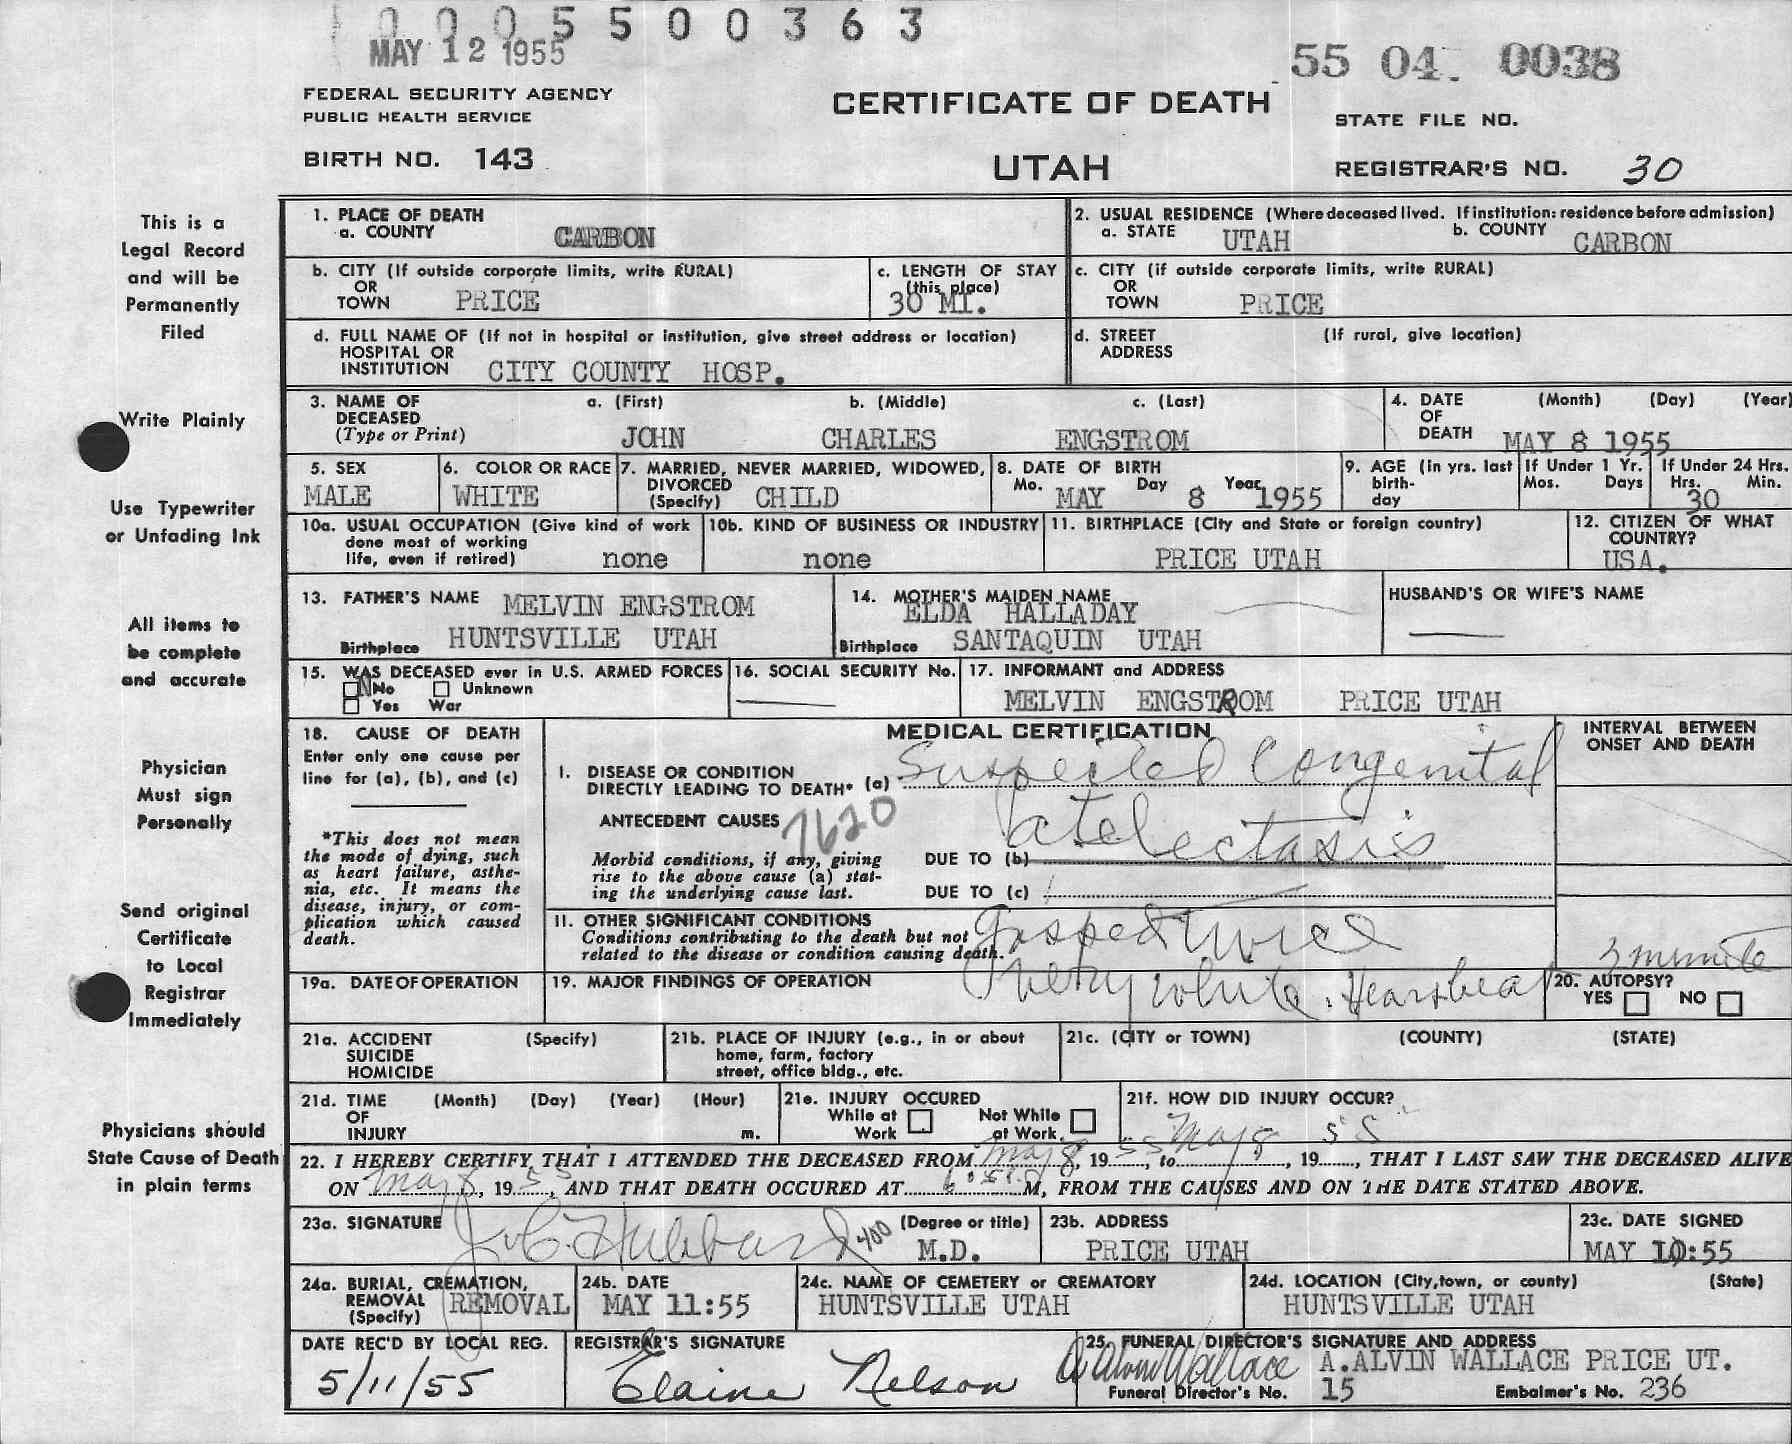 0005500363
MAY 12 1955
55 04. 0038
FEDERAL SECURITY AGENCY
PUBLIC HEALTH SERVICE
CERTIFICATE OF DEATH
STATE FILE NO.
BIRTH NO. 143
UTAH
REGISTRAR'S NO. 30
This is a
Legal Record
and will be
Permanently
Filed
Write Plainly
Use Typewriter
or Unfading Ink
All items to
be complete
and accurate
Physician
Must sign
Personally
Send original
Certificate
to Local
Registrar
Immediately
Physicians should
State Cause of Death
in plain terms
1. PLACE OF DEATH
a. COUNTY CARBON
2. USUAL RESIDENCE (Where deceased lived. If institution: residence before admission)
a. STATE UTAH b. COUNTY CARBON
b. CITY (If outside corporate limits, write RURAL)
OR
TOWN PRICE
c. LENGTH OF STAY
(this place)
30 MI.
c. CITY (if outside corporate limits, write RURAL)
OR
TOWN PRICE
d. FULL NAME OF (If not in hospital or institution, give street address or location)
HOSPITAL OR
INSTITUTION CITY COUNTY HOSP.
d. STREET (If rural, give location)
ADDRESS
3. NAME OF a. (First) b. (Middle) c. (Last)
DECEASED
(Type or Print) JOHN CHARLES ENGSTROM
4. DATE (Month) (Day) (Year)
OF
DEATH MAY 8 1955
5. SEX
MALE
6. COLOR OR RACE
WHITE
7. MARRIED, NEVER MARRIED, WIDOWED,
DIVORCED
(Specify) CHILD
8. DATE OF BIRTH
Mo. MAY Day 8 Year 1955
9. AGE (in yrs. last
birth-
day
If Under 1 Yr.
Mos. Days
If Under 24 Hrs.
Hrs. Min.
30
10a. USUAL OCCUPATION (Give kind of work
done most of working
life, even if retired) none
10b. KIND OF BUSINESS OR INDUSTRY
none
11. BIRTHPLACE (City and State or foreign country)
PRICE UTAH
12. CITIZEN OF WHAT
COUNTRY?
USA.
13. FATHER'S NAME MELVIN ENGSTROM
Birthplace HUNTSVILLE UTAH
14. MOTHER'S MAIDEN NAME
ELDA HALLADAY
Birthplace SANTAQUIN UTAH
HUSBAND'S OR WIFE'S NAME
15. WAS DECEASED ever in U.S. ARMED FORCES
No Unknown
Yes War
16. SOCIAL SECURITY No.
17. INFORMANT and ADDRESS
MELVIN ENGSTROM PRICE UTAH
18. CAUSE OF DEATH
Enter only one cause per
line for (a), (b), and (c)
*This does not mean
the mode of dying, such
as heart failure, asthe-
nia, etc. It means the
disease, injury, or com-
plication which caused
death.
MEDICAL CERTIFICATION
INTERVAL BETWEEN
ONSET AND DEATH
I. DISEASE OR CONDITION
DIRECTLY LEADING TO DEATH* (a) Suspected Congenital
atelectasis
ANTECEDENT CAUSES 7620
Morbid conditions, if any, giving
rise to the above cause (a) stat-
ing the underlying cause last.
DUE TO (b)
DUE TO (c)
II. OTHER SIGNIFICANT CONDITIONS
Conditions contributing to the death but not
related to the disease or condition causing death.
Gasped twice
very white. Hearsbeat
3 minute
19a. DATE OF OPERATION
19. MAJOR FINDINGS OF OPERATION
20. AUTOPSY?
YES NO
21a. ACCIDENT (Specify)
SUICIDE
HOMICIDE
21b. PLACE OF INJURY (e.g., in or about
home, farm, factory
street, office bldg., etc.
21c. (CITY or TOWN) (COUNTY) (STATE)
21d. TIME (Month) (Day) (Year) (Hour)
OF
INJURY m.
21e. INJURY OCCURED
While at Not While
Work at Work
21f. HOW DID INJURY OCCUR?
22. I HEREBY CERTIFY THAT I ATTENDED THE DECEASED FROM May 8, 19 55, to May 8, 19 55, THAT I LAST SAW THE DECEASED ALIVE
ON May 8, 19 55, AND THAT DEATH OCCURED AT M, FROM THE CAUSES AND ON THE DATE STATED ABOVE.
23a. SIGNATURE J. C. Hubbard 400 (Degree or title)
M.D.
23b. ADDRESS
PRICE UTAH
23c. DATE SIGNED
MAY 10:55
24a. BURIAL, CREMATION,
REMOVAL
(Specify) REMOVAL
24b. DATE
MAY 11:55
24c. NAME OF CEMETERY or CREMATORY
HUNTSVILLE UTAH
24d. LOCATION (City,town, or county) (State)
HUNTSVILLE UTAH
DATE REC'D BY LOCAL REG.
5/11/55
REGISTRAR'S SIGNATURE
Elaine Nelson
25. FUNERAL DIRECTOR'S SIGNATURE AND ADDRESS
A. Alvin Wallace A.ALVIN WALLACE PRICE UT.
Funeral Director's No. 15 Embalmer's No. 236